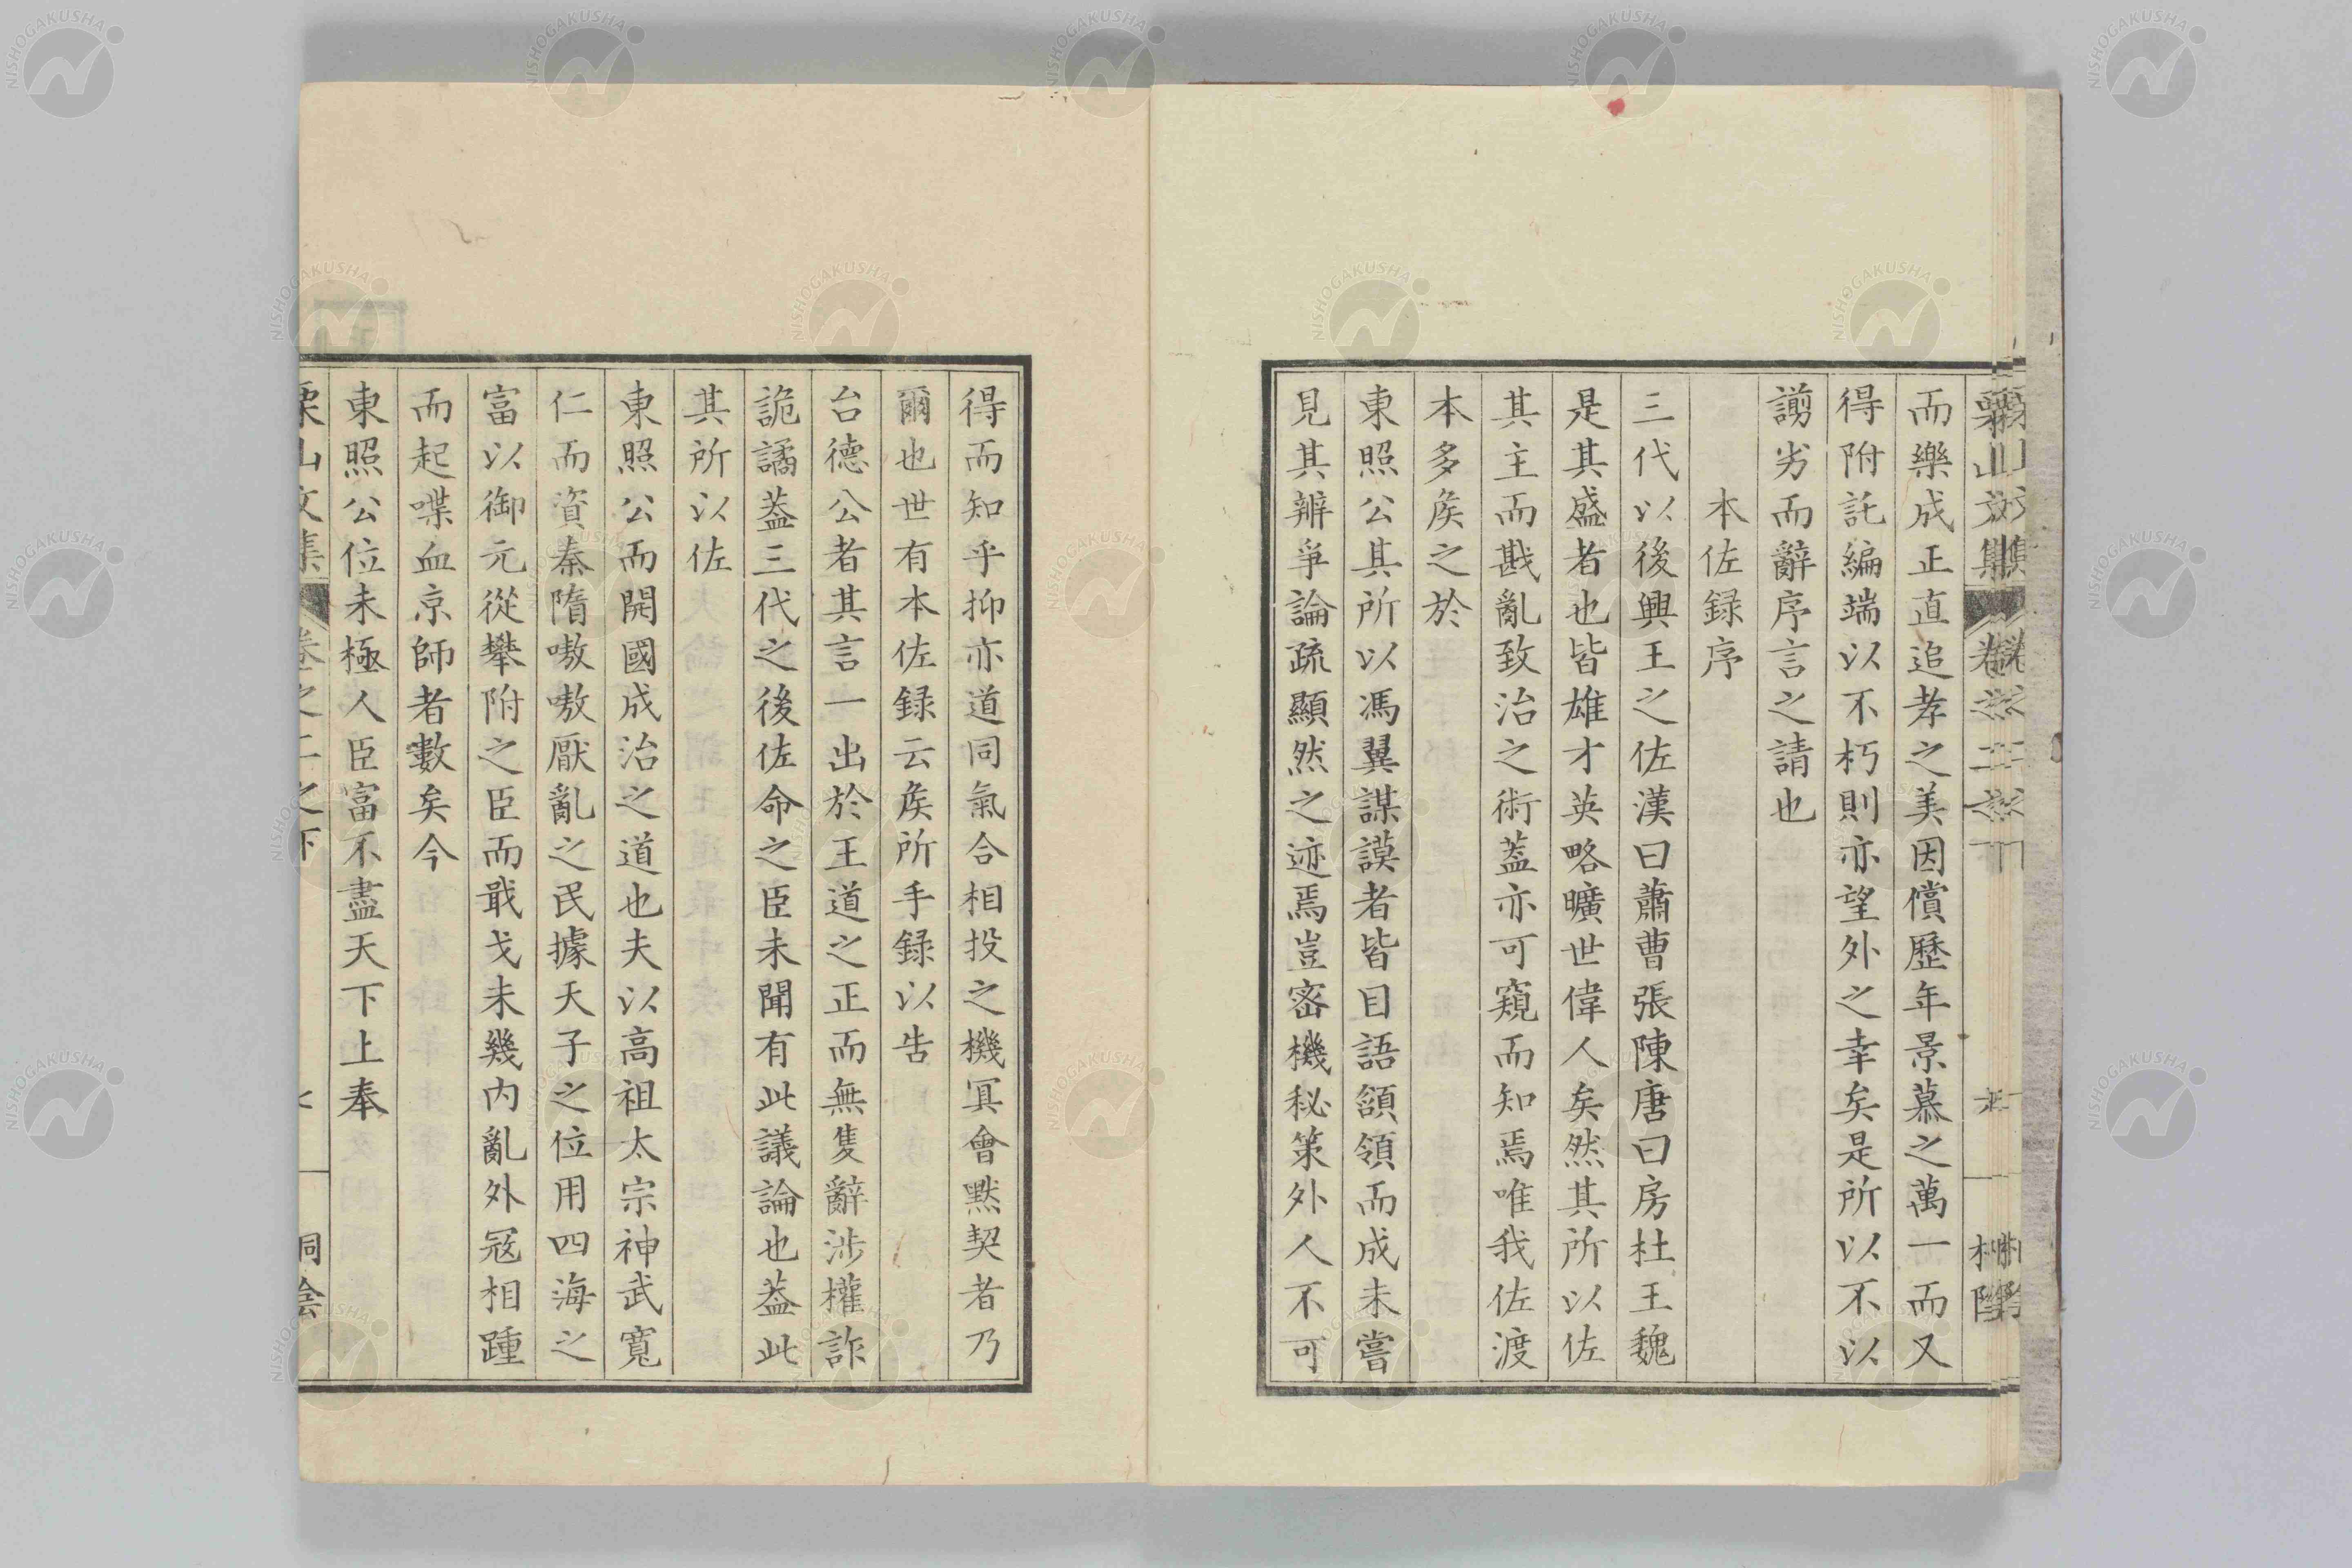 而樂成正直追孝之美因償歷年景慕之萬一而又
得附託編端以不朽則亦望外之幸矣是所以不以
謭劣而辭序言之請也
本佐録序
三代以後興王之佐漢曰蕭曹張陳唐曰房杜王魏
是其盛者也皆雄才英略曠世偉人矣然其所以佐
其主而戡亂致治之術葢亦可窺而知焉唯我佐渡
本多矦之於
東照公其所以馮翼謀謨者皆目語頷領而成未嘗
見其辨爭論疏顯然之迹焉豈密機秘策外人不可
得而知乎抑亦道同氣合相投之機冥會默契者乃
爾也世有本佐録云矦所手録以告
台德公者其言一出於王道之正而無隻辭涉權詐
詭譎葢三代之後佐命之臣未聞有此議論也葢此
其所以佐
東照公而開國成治之道也夫以高祖太宗神武寬
仁而資秦隋嗷嗷厭亂之民據天子之位用四海之
富以御元從攀附之臣而戢戈未幾内亂外冦相踵
而起喋血京師者數矣今
東照公位未極人臣富不盡天下上奉
栗山文集 卷之二之下
NISHOGAKUSHA